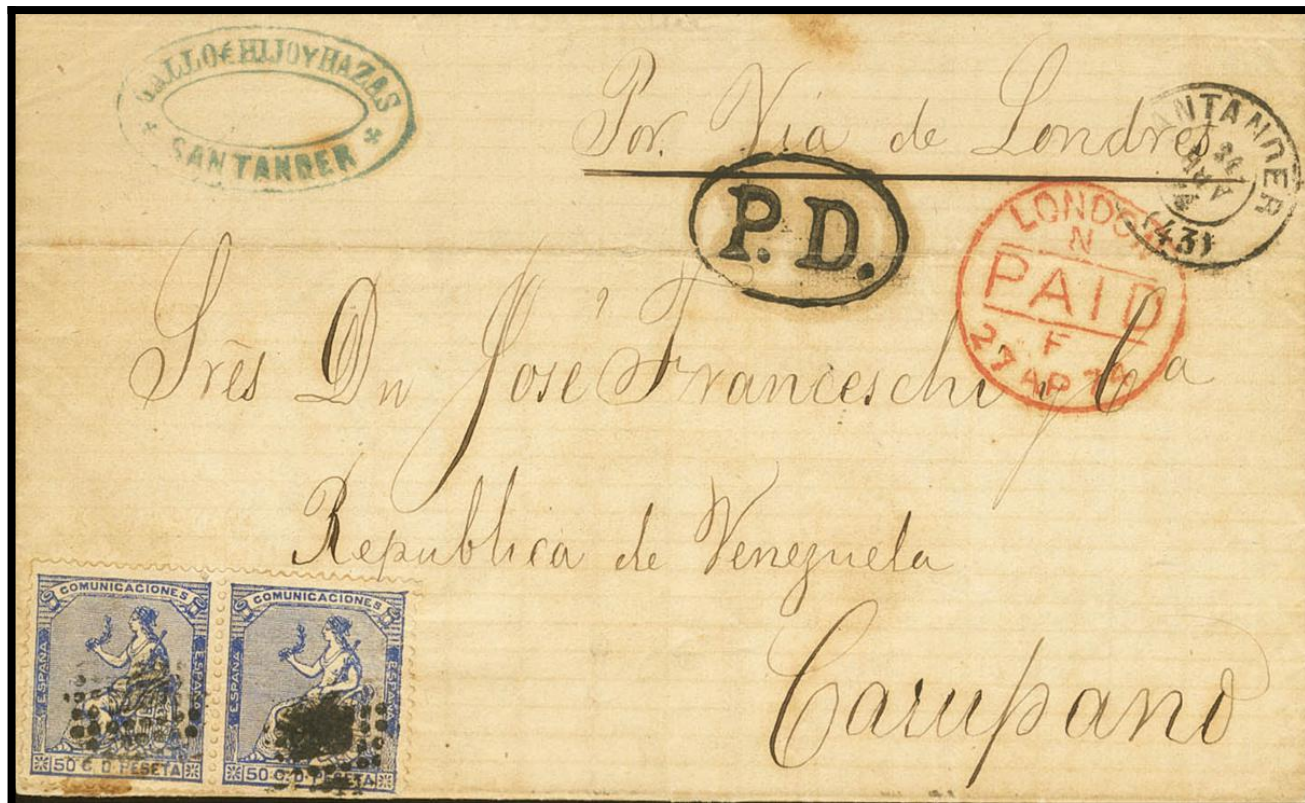 GALLO é HIJO Y HAZAS
SANTANDER
Por Via de Londres
ANTANDER
ABR
(43)
P.D.
LONDON
N
PAID
F
27 AP 74
Srēs Dn José Franceschi y Cª
Republica de Venezuela
Carupano
COMUNICACIONES
ESPAÑA
ESPAÑA
50 C. D. PESETA
COMUNICACIONES
ESPAÑA
ESPAÑA
50 C. D. PESETA